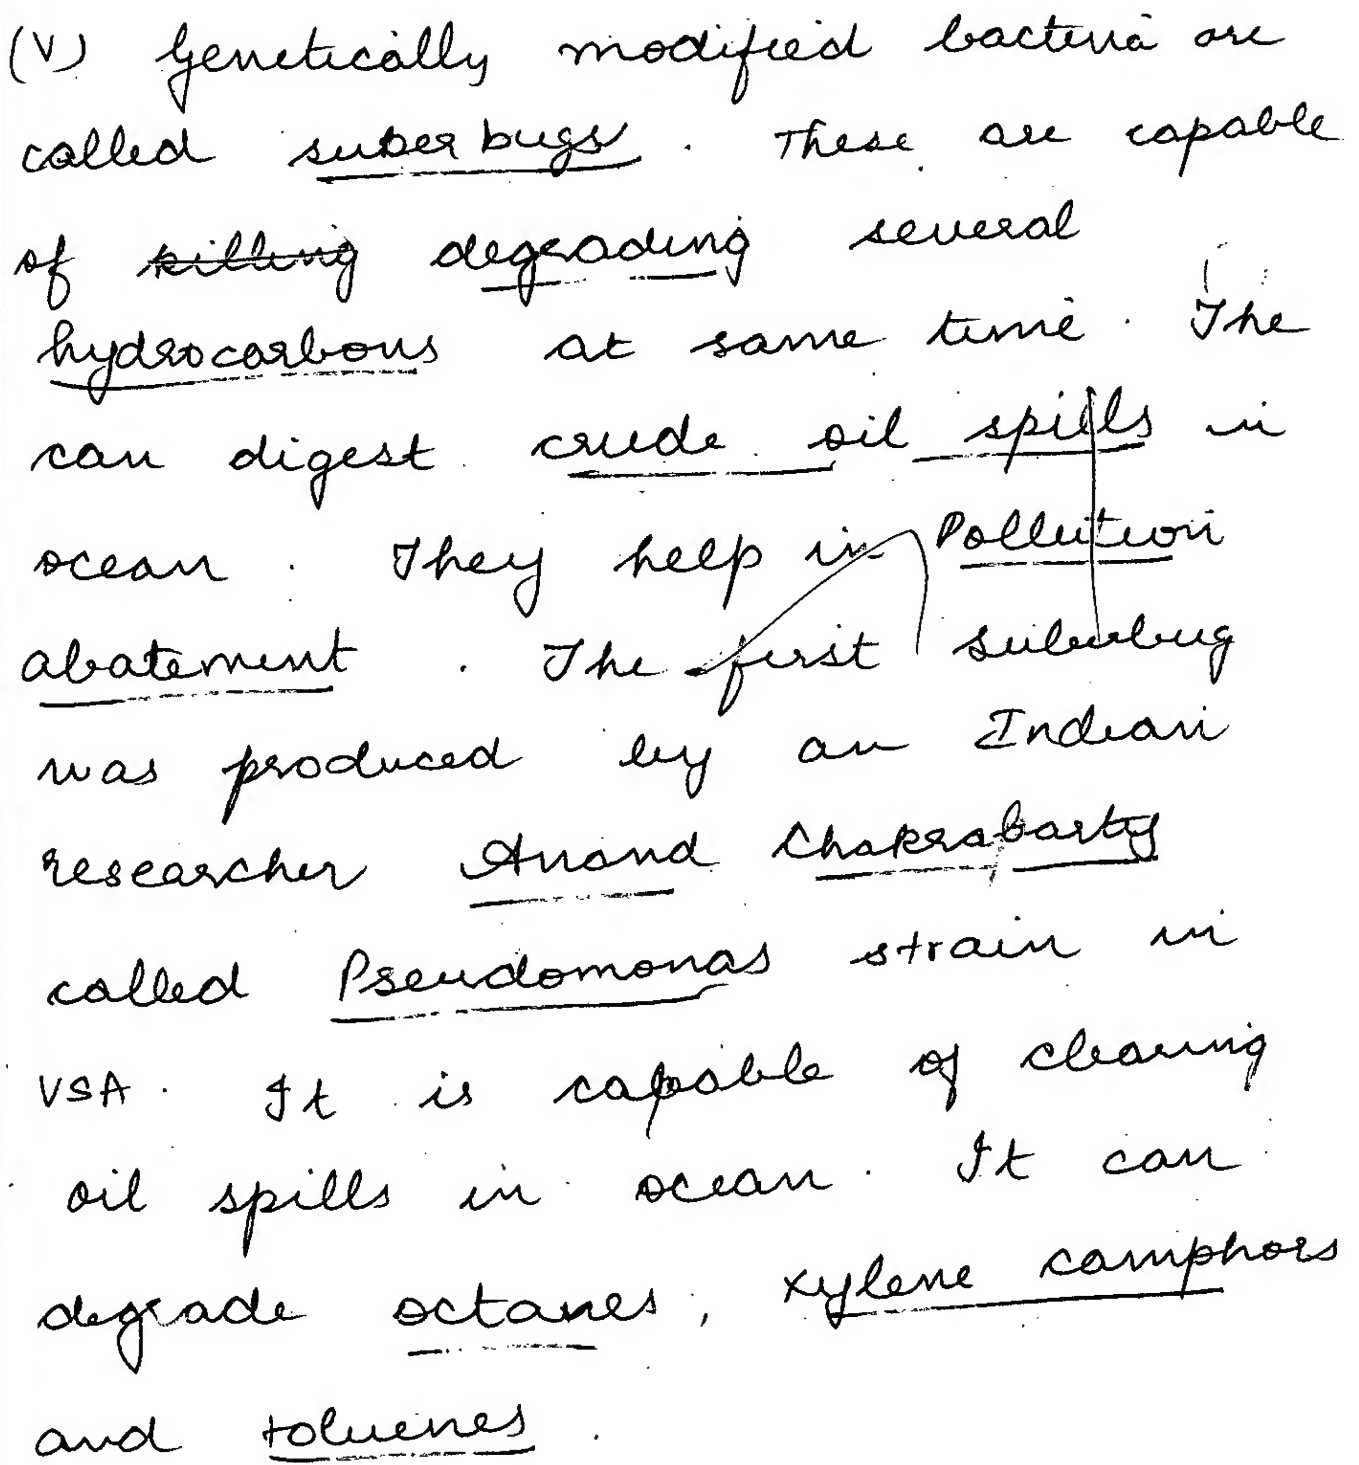 (V) Genetically modified bacteria are
called superbugs. These are capable
of killing degrading several
hydrocarbons at same time. The
can digest crude oil spills in
ocean. They help in Pollution
abatement. The first superbug
was produced by an Indian
researcher Anand Chakrabarty
called Pseudomonas strain in
USA. It is capable of clearing
oil spills in ocean. It can
degrade octanes, xylene camphors
and toluenes.